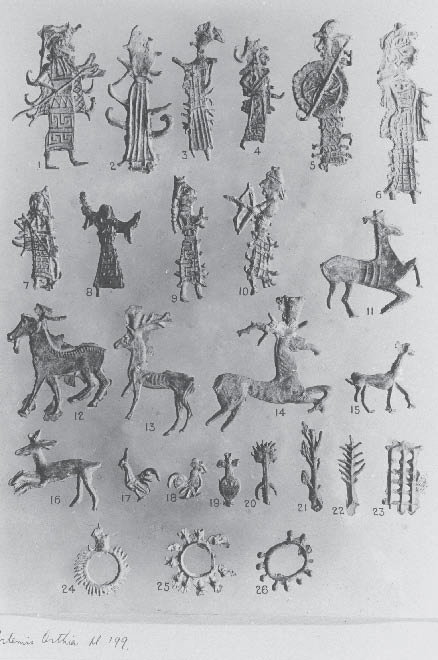 1 2 3 4 5 6
7 8 9 10 11
12 13 14 15
16 17 18 19 20 21 22 23
24 25 26
rtemis Orthia pl 199.